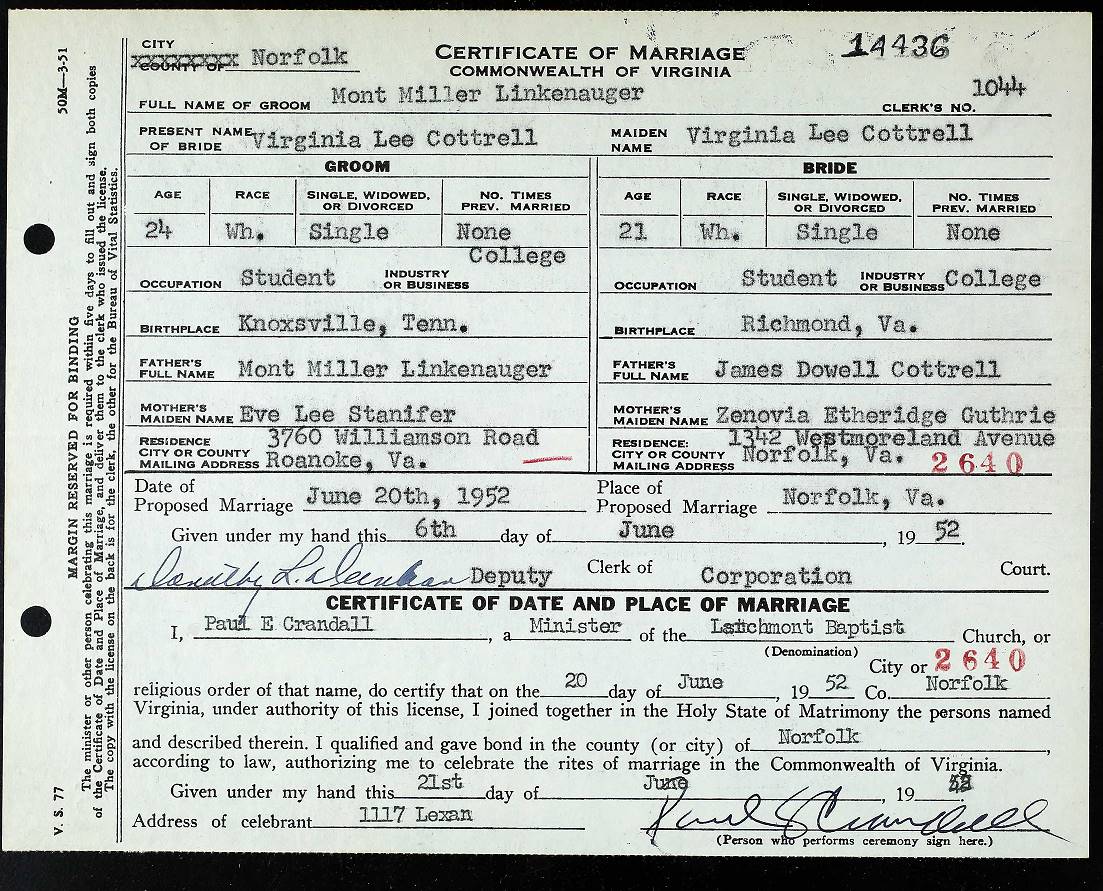 CITY
COUNTY OF Norfolk
CERTIFICATE OF MARRIAGE
14436
COMMONWEALTH OF VIRGINIA
FULL NAME OF GROOM Mont Miller Linkenauger
CLERK'S NO. 1044
PRESENT NAME OF BRIDE Virginia Lee Cottrell MAIDEN NAME Virginia Lee Cottrell
GROOM BRIDE
AGE RACE SINGLE, WIDOWED, OR DIVORCED NO. TIMES PREV. MARRIED AGE RACE SINGLE, WIDOWED, OR DIVORCED NO. TIMES PREV. MARRIED
24 Wh. Single None 21 Wh. Single None
OCCUPATION Student INDUSTRY OR BUSINESS College OCCUPATION Student INDUSTRY OR BUSINESS College
BIRTHPLACE Knoxsville, Tenn. BIRTHPLACE Richmond, Va.
FATHER'S FULL NAME Mont Miller Linkenauger FATHER'S FULL NAME James Dowell Cottrell
MOTHER'S MAIDEN NAME Eve Lee Stanifer MOTHER'S MAIDEN NAME Zenovia Etheridge Guthrie
RESIDENCE 3760 Williamson Road RESIDENCE: 1342 Westmoreland Avenue
CITY OR COUNTY MAILING ADDRESS Roanoke, Va. CITY OR COUNTY MAILING ADDRESS Norfolk, Va. 2640
Date of Proposed Marriage June 20th, 1952 Place of Proposed Marriage Norfolk, Va.
Given under my hand this 6th day of June, 19 52.
Dorothy L. Deputy Clerk of Corporation Court.
CERTIFICATE OF DATE AND PLACE OF MARRIAGE
I, Paul E Crandall, a Minister of the Larchmont Baptist Church, or
(Denomination)
City or 2640
religious order of that name, do certify that on the 20 day of June, 19 52 Co. Norfolk
Virginia, under authority of this license, I joined together in the Holy State of Matrimony the persons named
and described therein. I qualified and gave bond in the county (or city) of Norfolk,
according to law, authorizing me to celebrate the rites of marriage in the Commonwealth of Virginia.
Given under my hand this 21st day of June, 19
Address of celebrant 1117 Lexan Paul E Crandall
(Person who performs ceremony sign here.)
V. S. 77 50M—3-51
MARGIN RESERVED FOR BINDING
The minister or other person celebrating this marriage is required within five days to fill out and sign both copies
of the Certificate of Date and Place of Marriage, and deliver them to the clerk who issued the license.
The copy with the license on the back is for the clerk, the other for the Bureau of Vital Statistics.